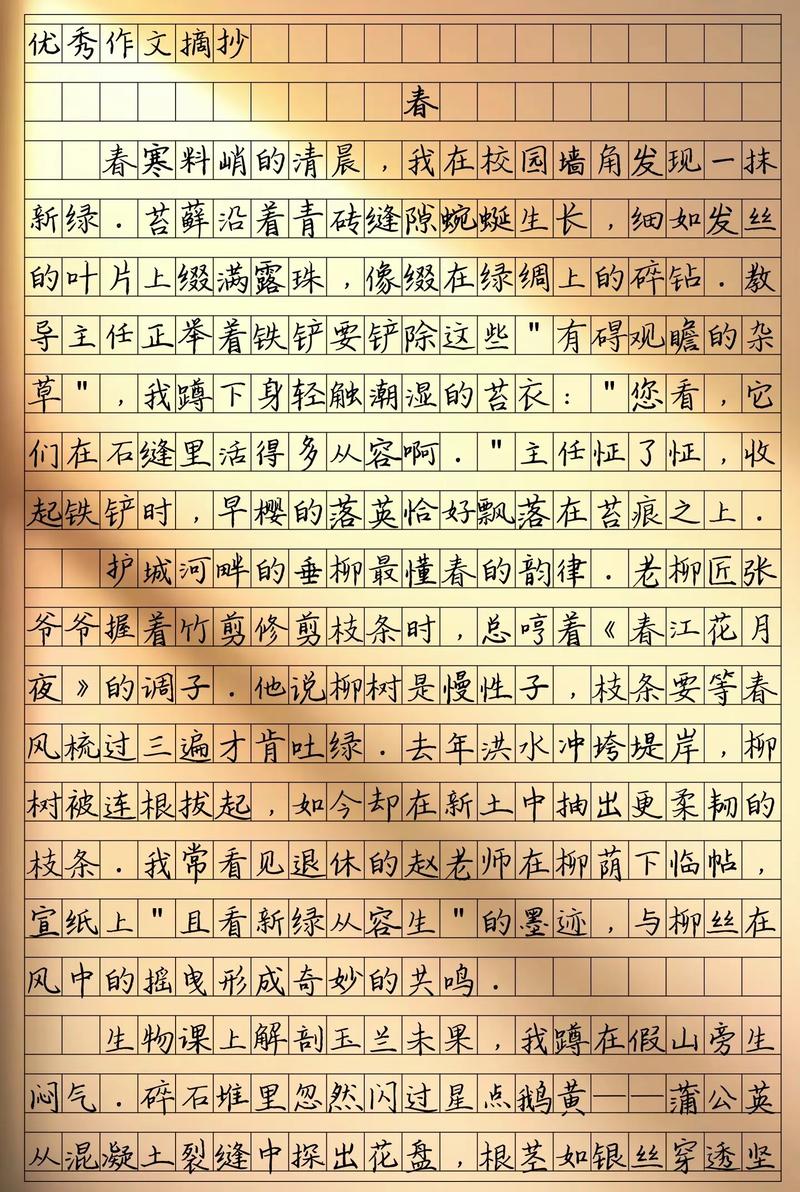 优秀作文摘抄
春
春寒料峭的清晨，我在校园墙角发现一抹
新绿．苔藓沿着青砖缝隙蜿蜒生长，细如发丝
的叶片上缀满露珠，像缀在绿绸上的碎钻．教
导主任正举着铁铲要铲除这些"有碍观瞻的杂
草"，我蹲下身轻触潮湿的苔衣："您看，它
们在石缝里活得多从容啊．"主任怔了怔，收
起铁铲时，早樱的落英恰好飘落在苔痕之上．
护城河畔的垂柳最懂春的韵律．老柳匠张
爷爷握着竹剪修剪枝条时，总哼着《春江花月
夜》的调子．他说柳树是慢性子，枝条要等春
风梳过三遍才肯吐绿．去年洪水冲垮堤岸，柳
树被连根拔起，如今却在新土中抽出更柔韧的
枝条．我常看见退休的赵老师在柳荫下临帖，
宣纸上"且看新绿从容生"的墨迹，与柳丝在
风中的摇曳形成奇妙的共鸣．
生物课上解剖玉兰未果，我蹲在假山旁生
闷气．碎石堆里忽然闪过星点鹅黄——蒲公英
从混凝土裂缝中探出花盘，根茎如银丝穿透坚